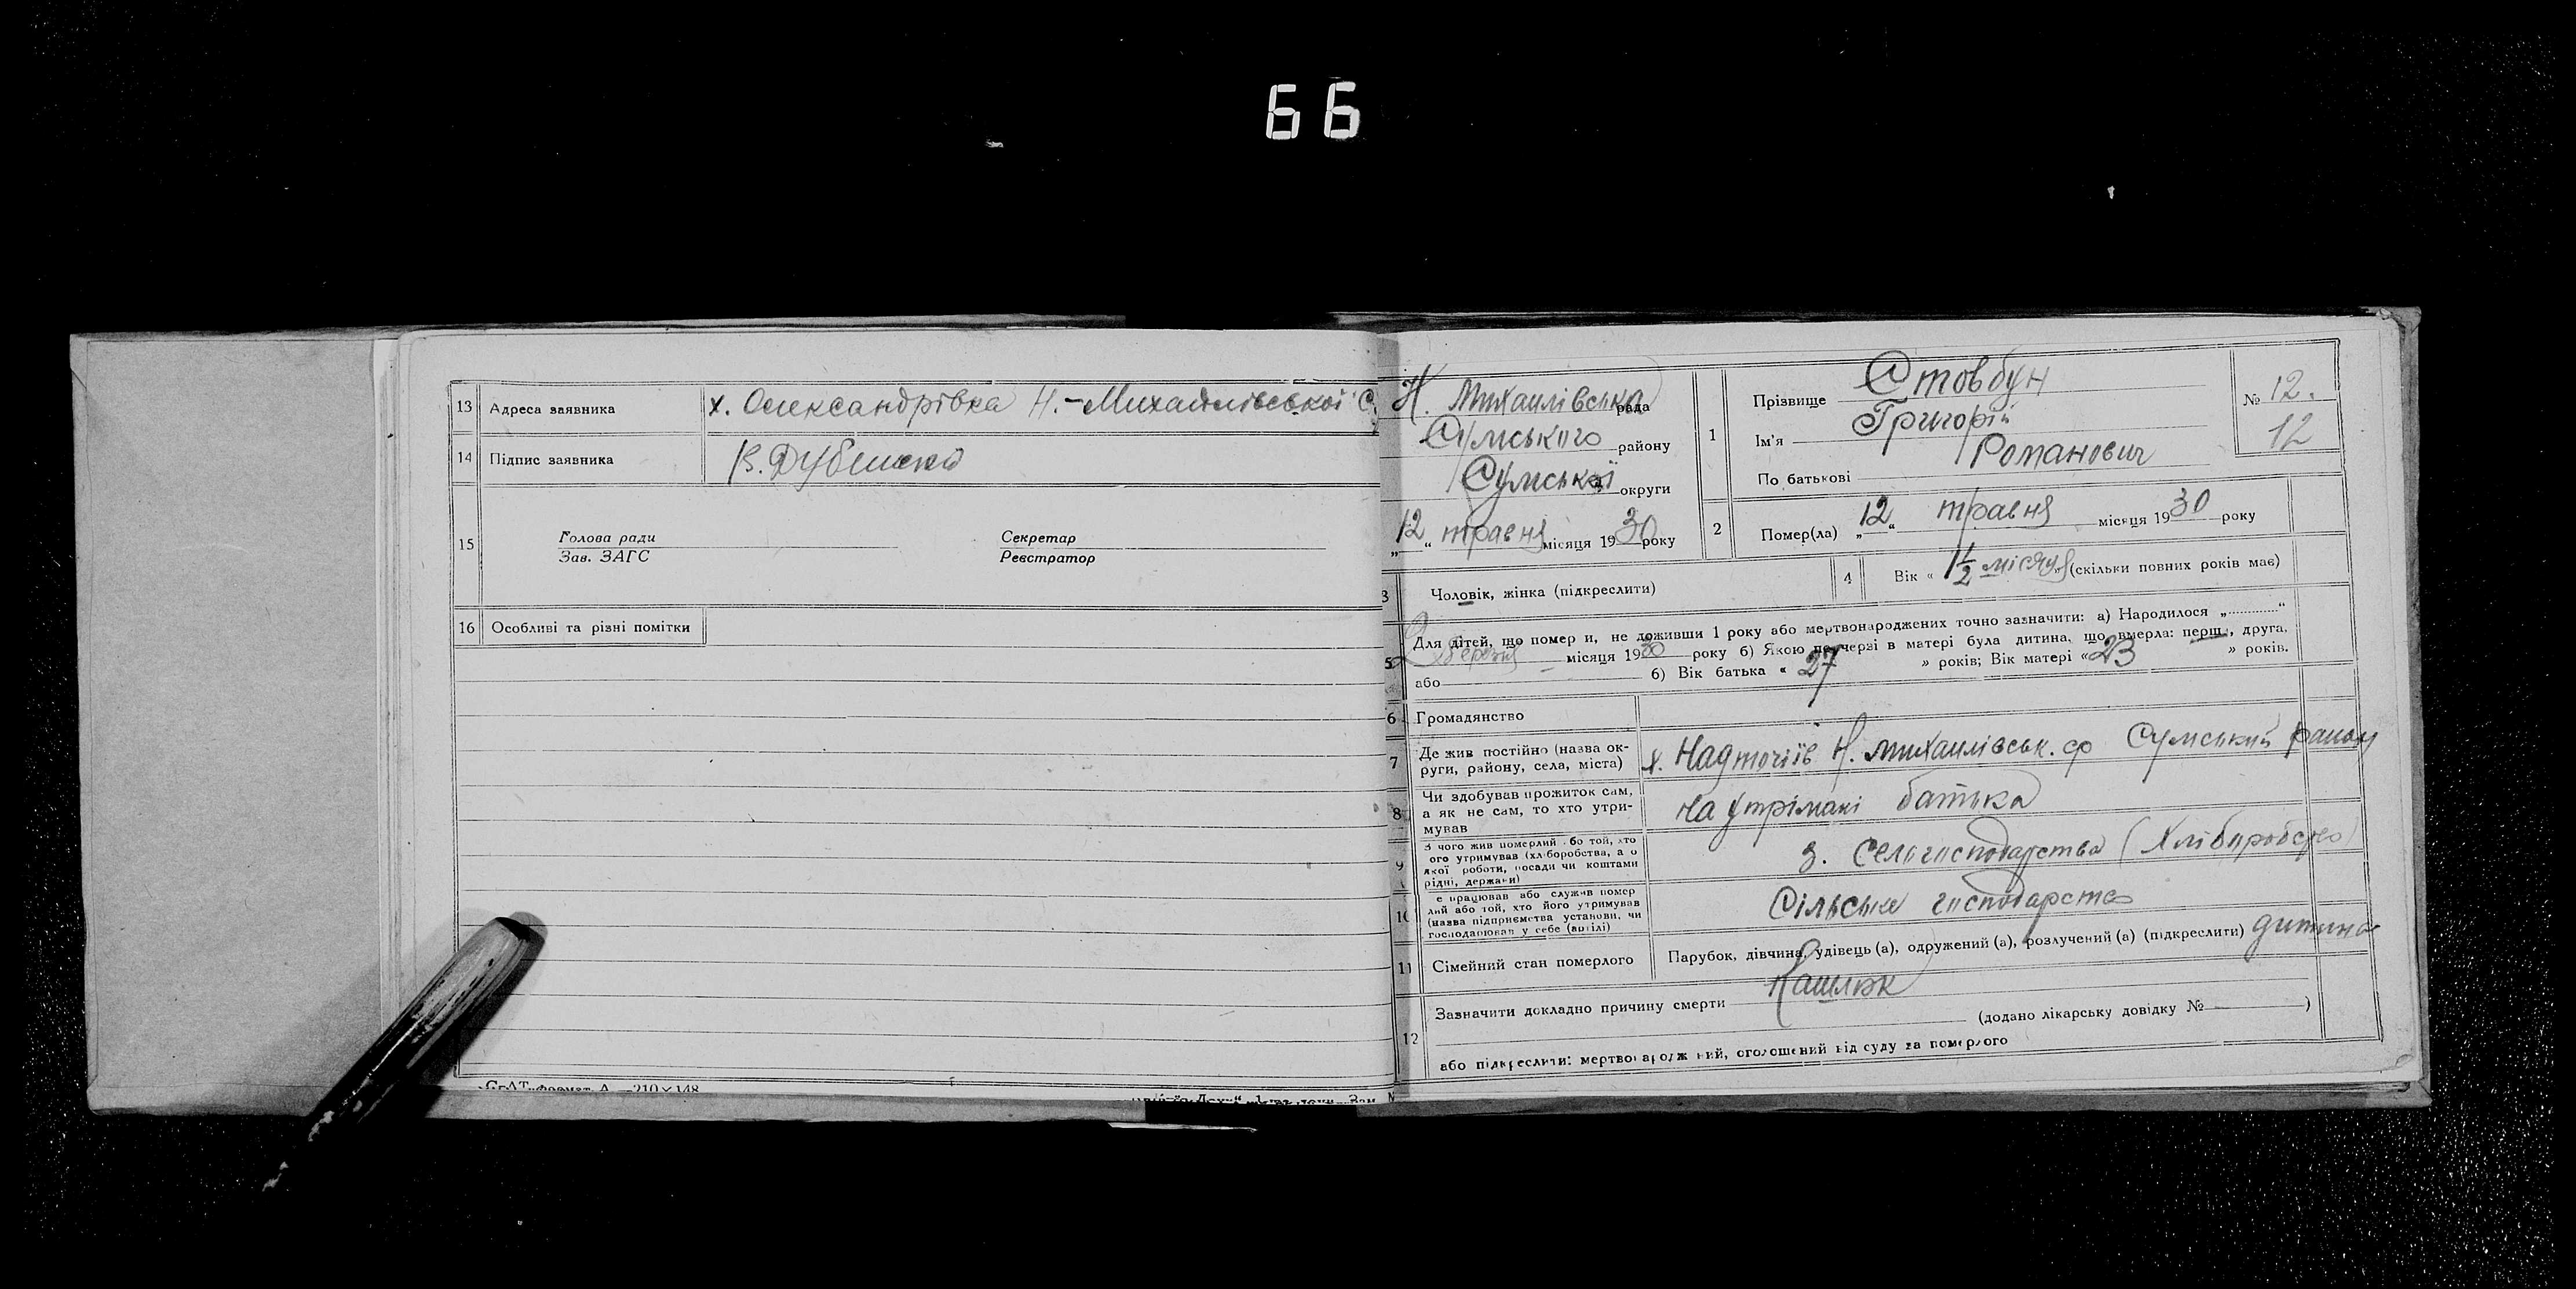 66
13 Адреса заявника х. Олександрівка Н.-Михайлівської С.
14 Підпис заявника В. Дубинка
15 Голова ради
Зав. ЗАГС
Секретар
Реєстратор
16 Особливі та різні помітки
Н. Михаилівська рада
Сумського району
Сумської округи
„12“ травня місяця 1930 року
1 Прізвище Стовбун
Ім'я Григорій
По батькові Романович
№ 12.
12
2 Помер(ла) „12“ травня місяця 1930 року
3 Чоловік, жінка (підкреслити)
4 Вік « 1½ місяця (скільки повних років має)
5 Для дітей, що помер и, не доживши 1 року або мертвонароджених точно зазначити: а) Народилося „ “
березня місяця 1930 року б) Якою по черзі в матері була дитина, що вмерла: перш , друга,
або б) Вік батька « 27 » років; Вік матері « 23 » років.
6 Громадянство
7 Де жив постійно (назва ок-
руги, району, села, міста) х. Надточіїв Н. Михаилівськ. ср Сумський району
8 Чи здобував прожиток сам,
а як не сам, то хто утри-
мував На утрімані батька
9 З чого жив померлий або той, хто
ого утримував (хліборобства, а о
якої роботи, посади чи коштами
рідні, держави) З. Сельгосподарства (Хліборобство)
10 е працював або служив помер
лий або той, хто його утримував
(назва підприємства установи, чи
господарював у себе (вдома) Сільське господарство
11 Сімейний стан померлого Парубок, дівчина, удівець (а), одружений (а), розлучений (а) (підкреслити) дитина
12 Зазначити докладно причину смерти Кашлюк
(додано лікарську довідку № )
або підкреслити: мертвонародж ний, оголошений від суду за померлого
Формат А —210×148